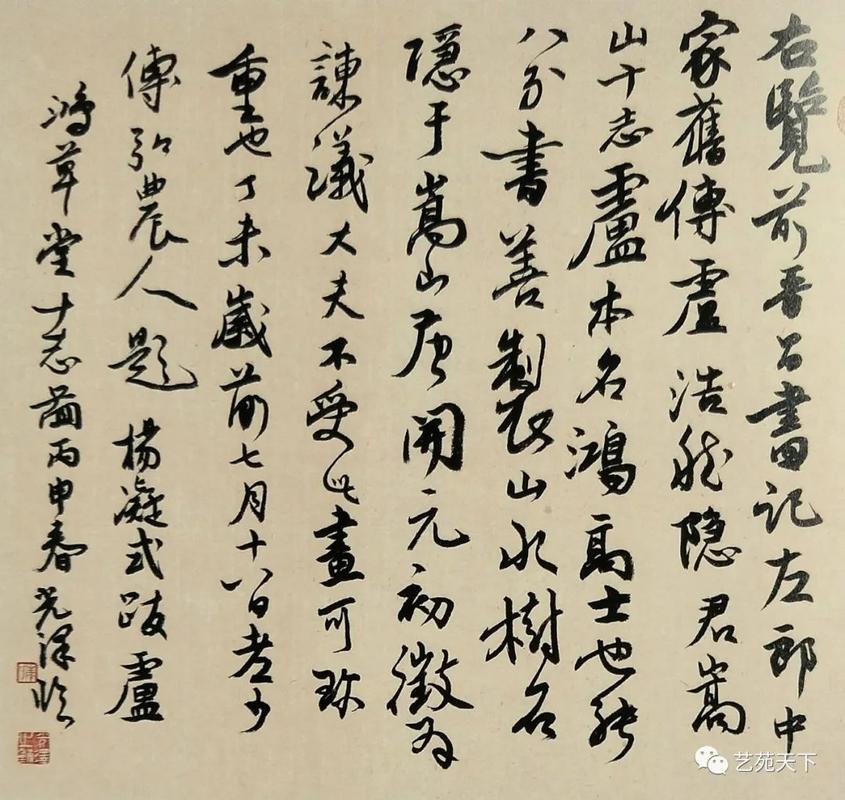 右覽前晉昌書記左郎中
家舊傳盧浩然隱君嵩
山十志盧本名鴻高士也能
八分書善製山水樹石
隱于嵩山唐開元初徵為
諫議大夫不受此畫可珎
重也丁未歲前七月十八日老少
傅弘農人題 楊凝式跋盧
鴻草堂十志啚丙申春光澤臨
艺苑天下